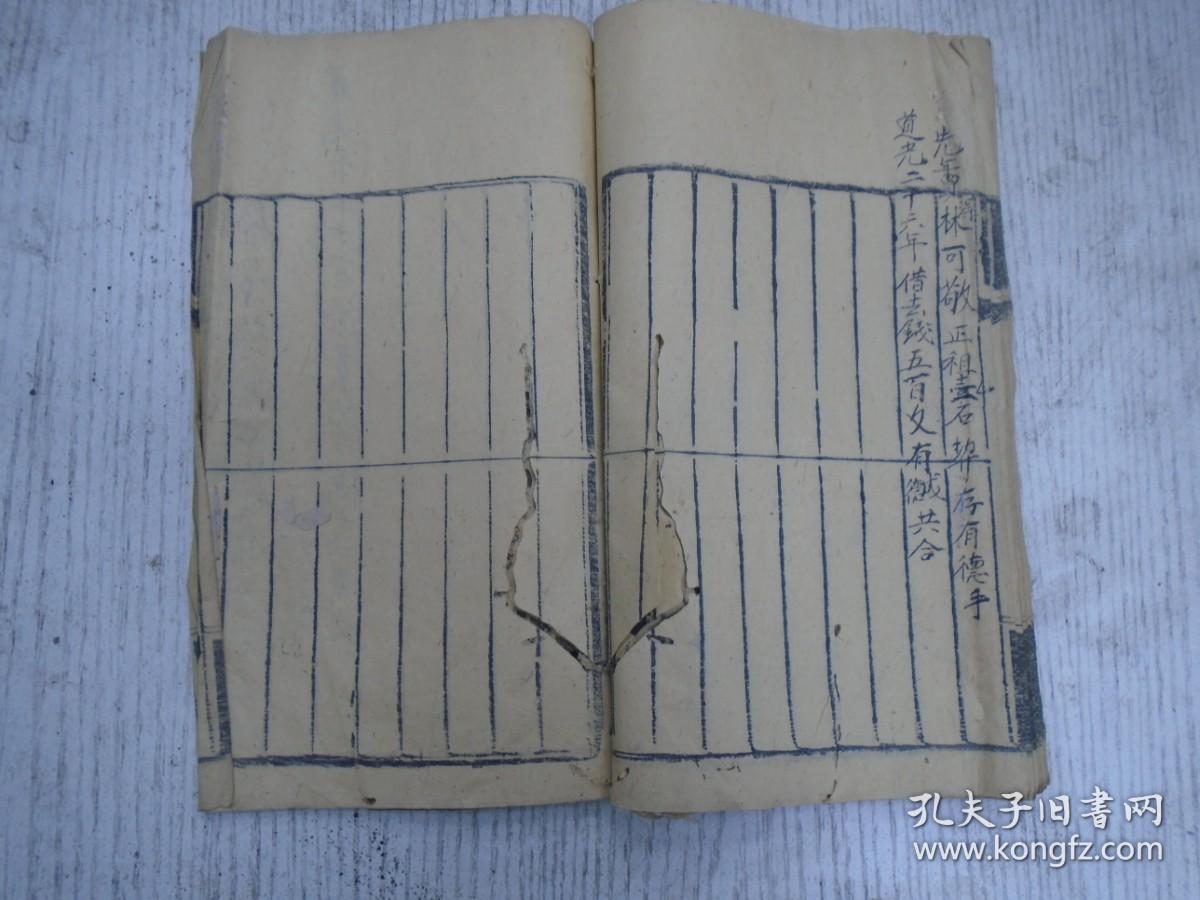 先年買林可敬正租壹石契存有德手
道光二十六年借去錢五百文有誠共合
孔夫子旧书网
www.kongfz.com